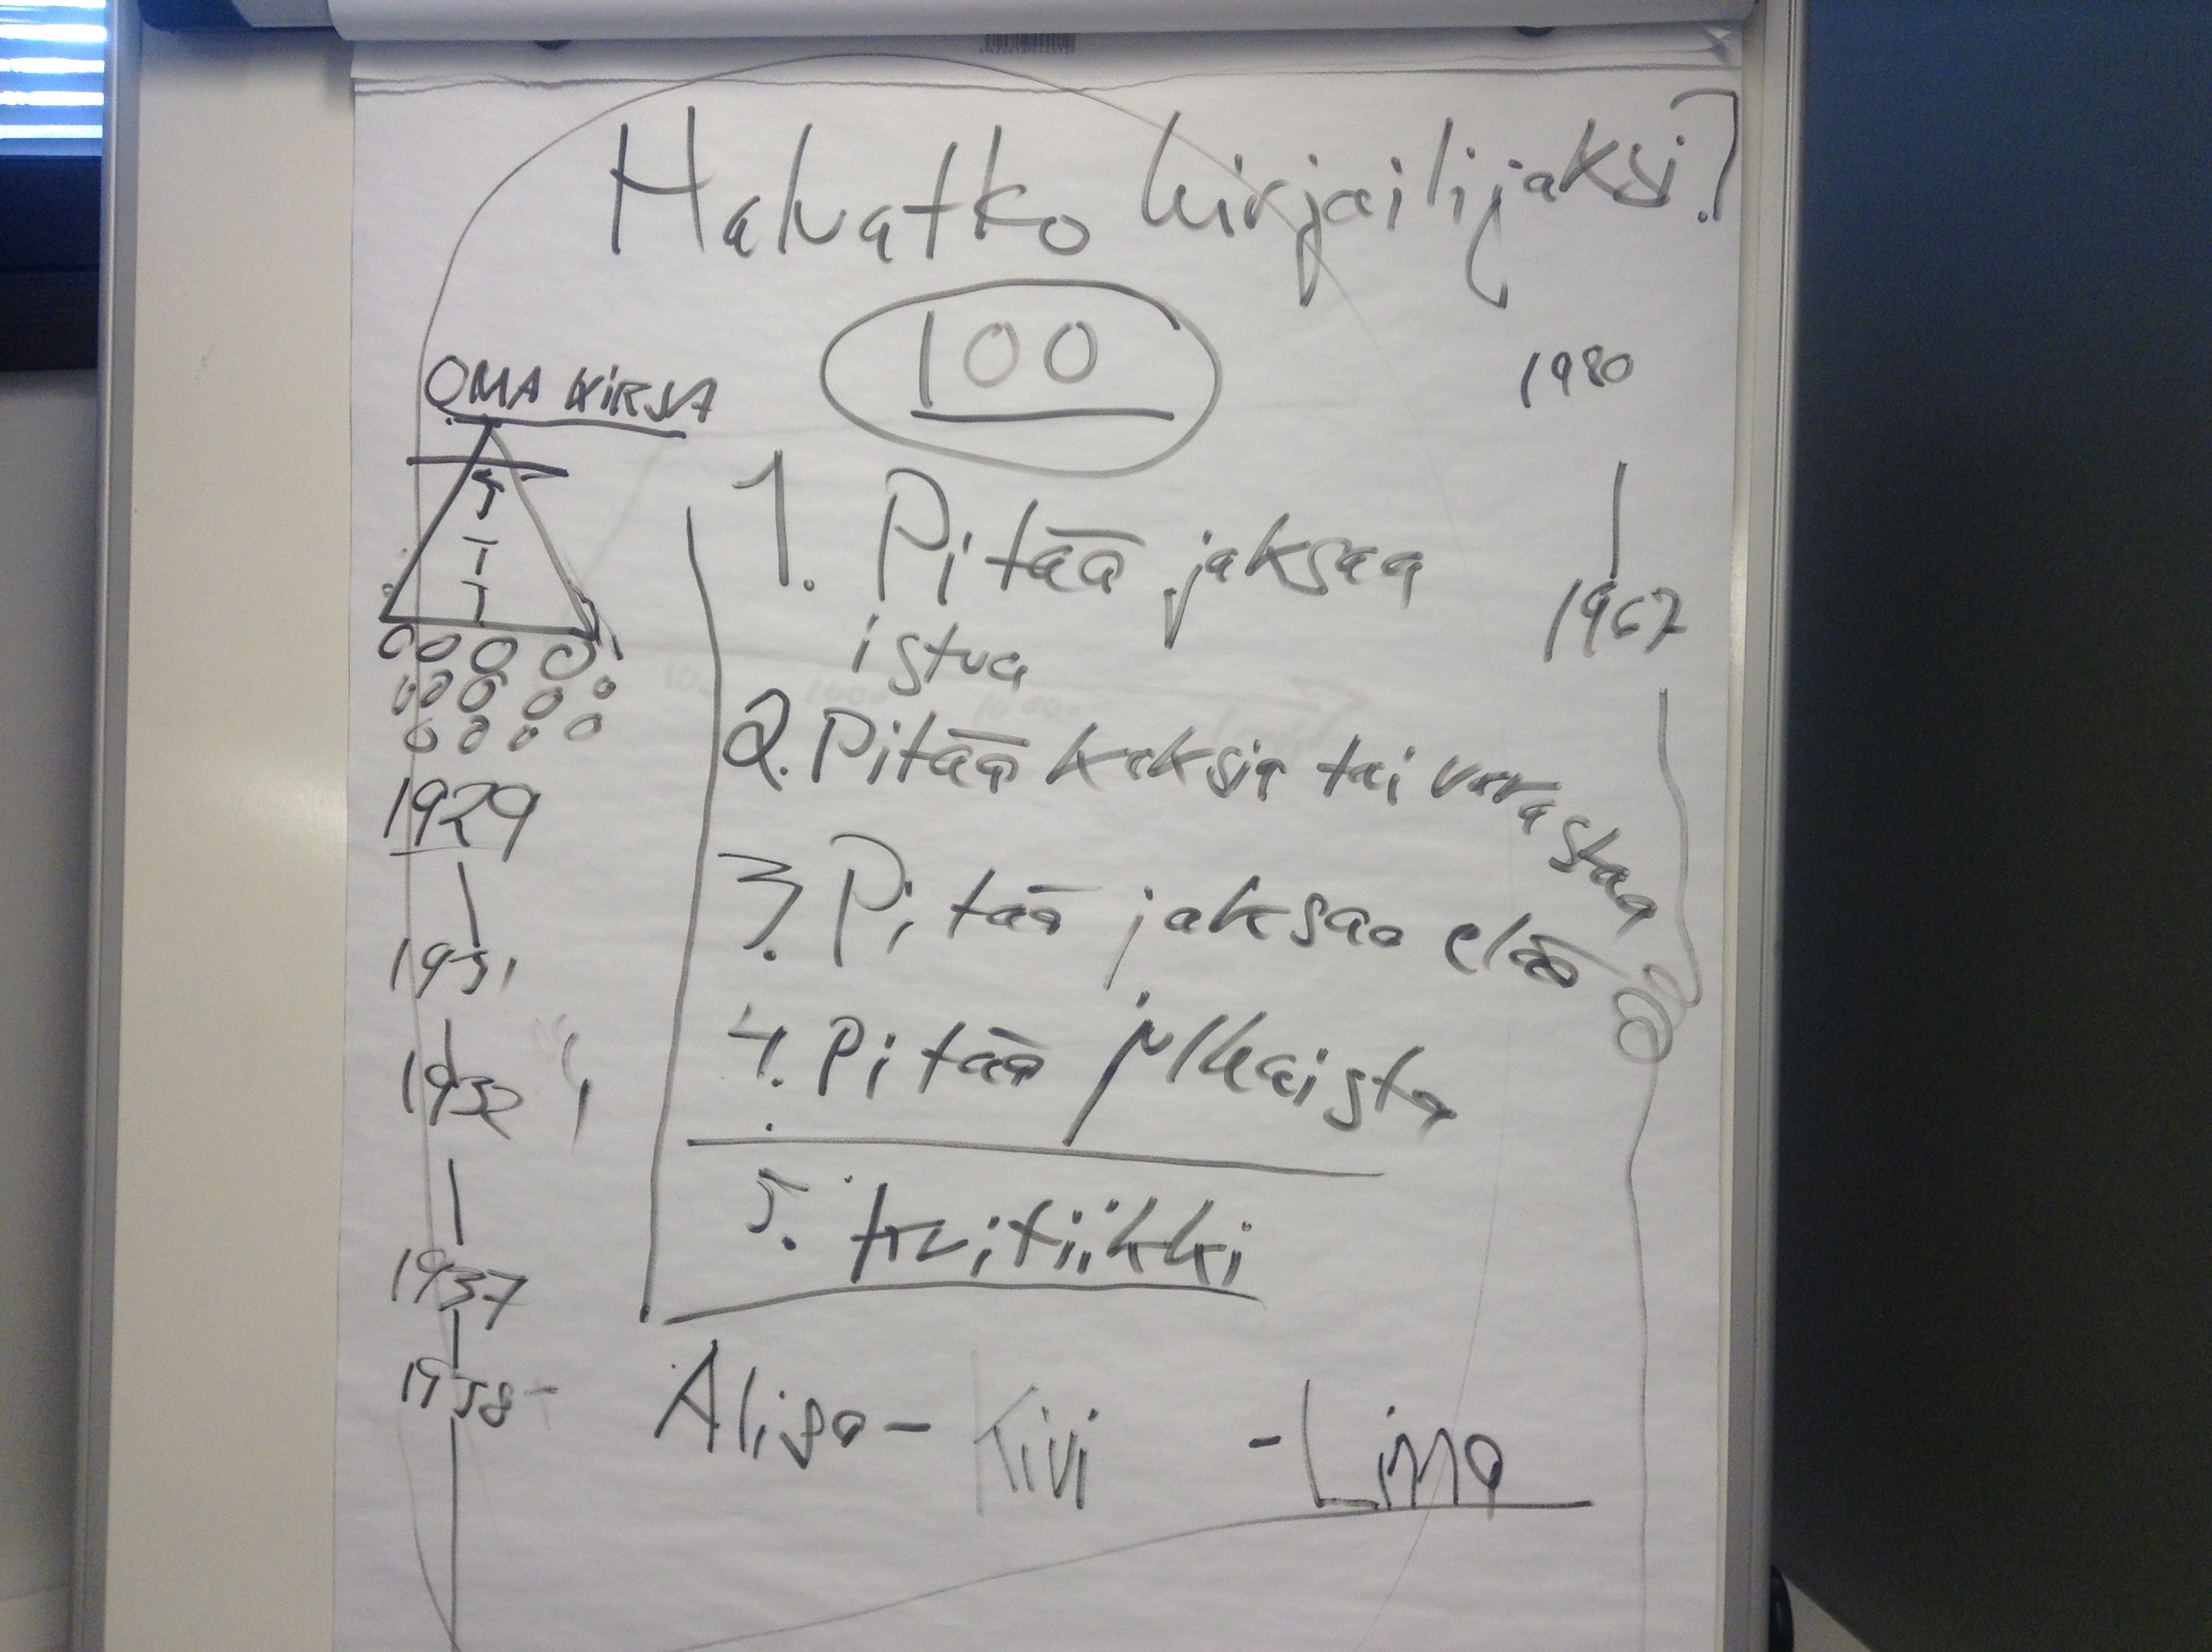 Haluatko kirjailijaksi?
100
1980
OMA KIRJA
1. Pitää jaksaa
istua
1967
2. Pitää keksiä tai varastaa
1929
3. Pitää jaksaa elää
1931
4. Pitää julkaista
1932
5. kritiikki
1937
1938-
Alisa - Kivi - Linna